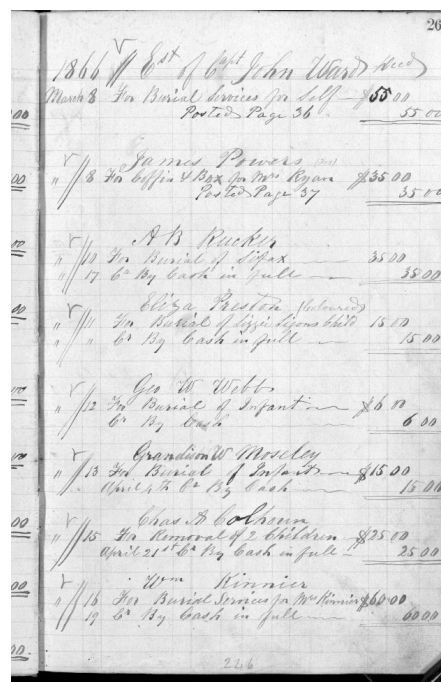 26
1866 Est of Capt John Ward Decd
March 8 For Burial Services for Self $55 00
Posted Page 36 55 00
James Powers
" 8 For Coffin & Box for Mrs Ryan $35 00
Posted Page 37 35 00
A B Rucker
" 10 For Burial of Sifax 35 00
" 17 Cr By Cash in full 35 00
Eliza Preston (Coloured)
" 11 For Burial of Lizzie child 15 00
" " Cr By Cash in full 15 00
Geo W Webb
" 12 For Burial of Infant $6 00
Cr By Cash 6 00
Grandison W Moseley
" 13 For Burial of Infant $15 00
April 4th Cr By Cash 15 00
Chas A Colhoun
" 15 For Removal of 2 Children $25 00
April 21st Cr By Cash in full 25 00
Wm Kinnier
" 16 For Burial Services for Mrs Kinnier $60 00
19 Cr By Cash in full 60 00
226